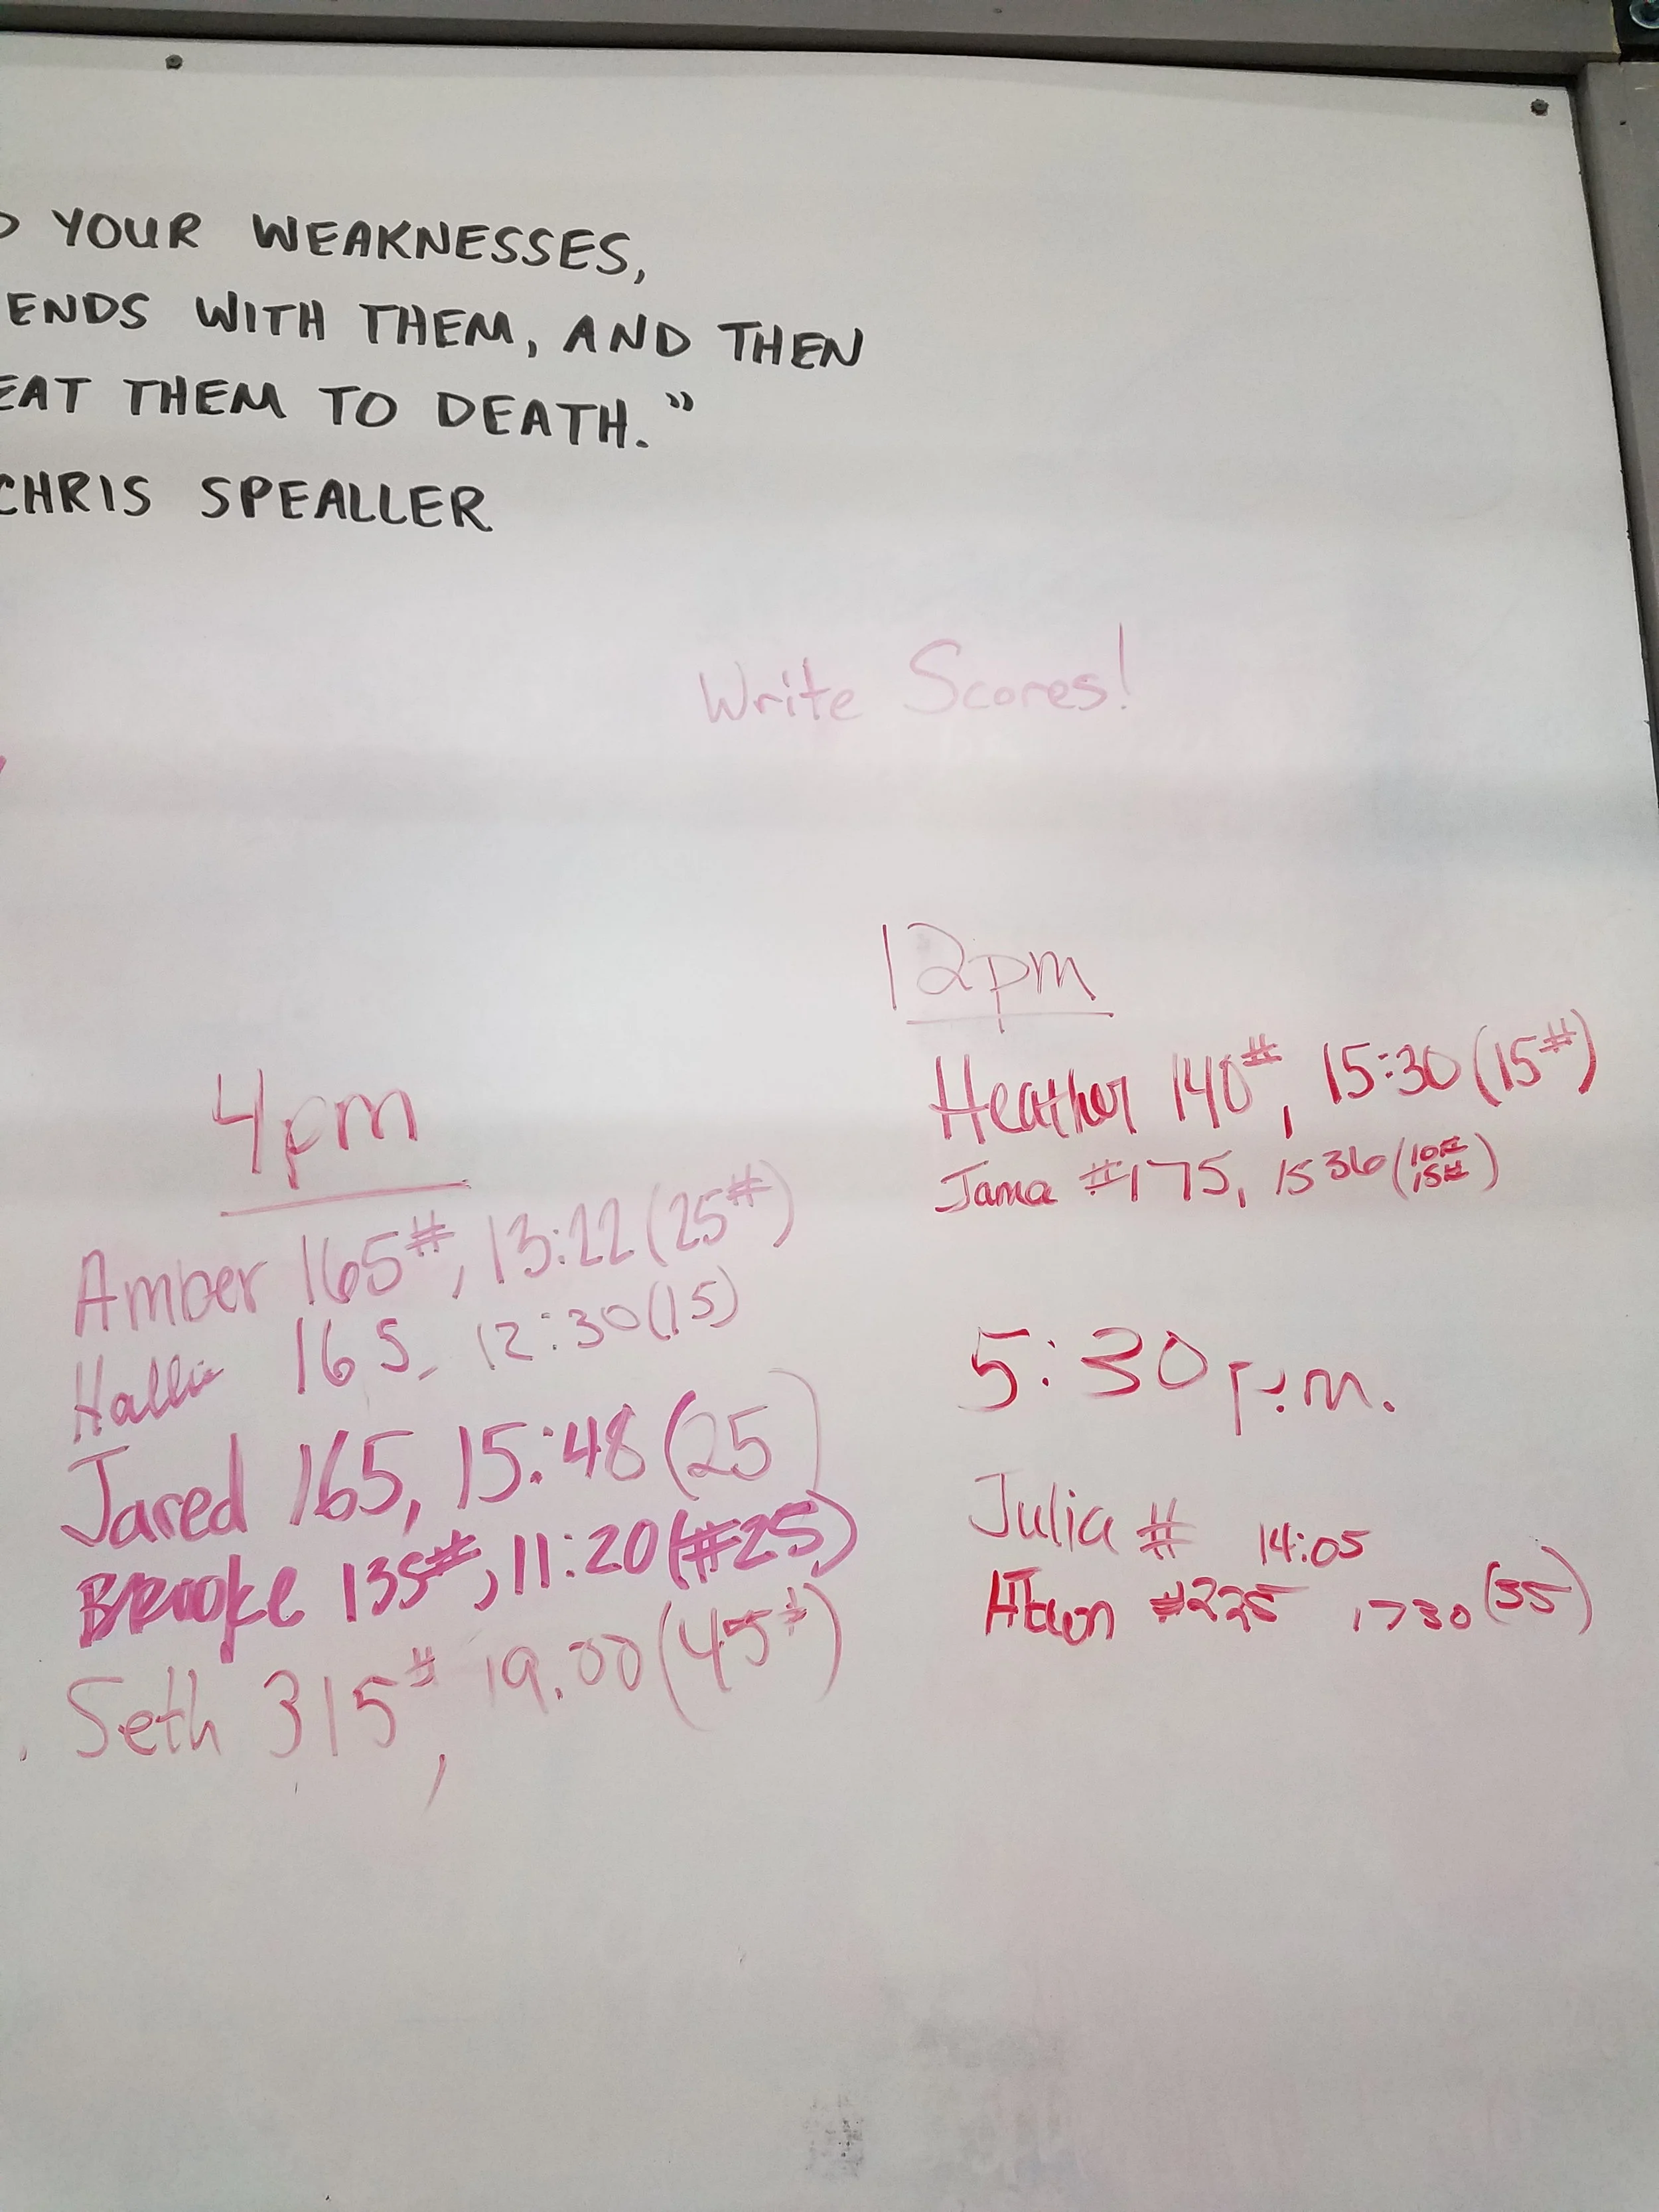 YOUR WEAKNESSES,
ENDS WITH THEM, AND THEN
EAT THEM TO DEATH."
CHRIS SPEALLER
Write Scores!
12pm
Heather 140#, 15:30 (15#)
Jama #175, 1536 (10# 15#)
4pm
Amber 165#, 13:22 (25#)
Hallie 165, 12:30 (15)
Jared 165, 15:48 (25)
Brooke 135#, 11:20 (#25)
Seth 315#, 19:00 (45#)
5:30 p.m.
Julia # 14:05
#225 1730 (35)